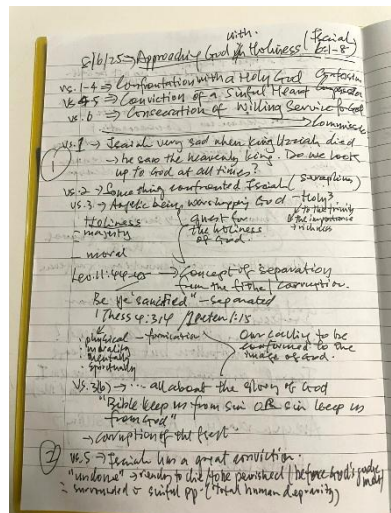 with
8/6/25 → Approaching God in Holiness (Isaiah 6:1-8)
vs. 1-4 → Confrontation with a Holy God
vs 4-5 → Conviction of a Sinful Heart
vs. 6 → Consecration of Willing Service for God
→ Commission
1 vs. 1 → Isaiah very sad when King Uzziah died
→ he saw the heavenly king. Do we look
up to God at all times?
vs. 2 → Something confronted Isaiah (seraphim)
vs. 3 → Angelic being worshipping God → Holy 3
→ to the trinity
Holiness
quest for
the holiness
of God.
the importance
- majesty
- moral
Lev. 11:44-45 → Concept of separation
from the filthe / corruption.
Be Ye "sanctified" - separated
1 Thess 4:3,4 1 Peter 1:15
physical - fornication
morality
mentally
spiritually
Our calling to be
conformed to the
image of God.
vs. 3(b) → ... all about the glory of God
"Bible keep us from sin OR sin keep us
from God"
→ corruption of the flesh
2 vs. 5 → Isaiah has a great conviction.
"undone" → ready to die / to be perished / before God's
surrounded sinful pp. (total human depravity)